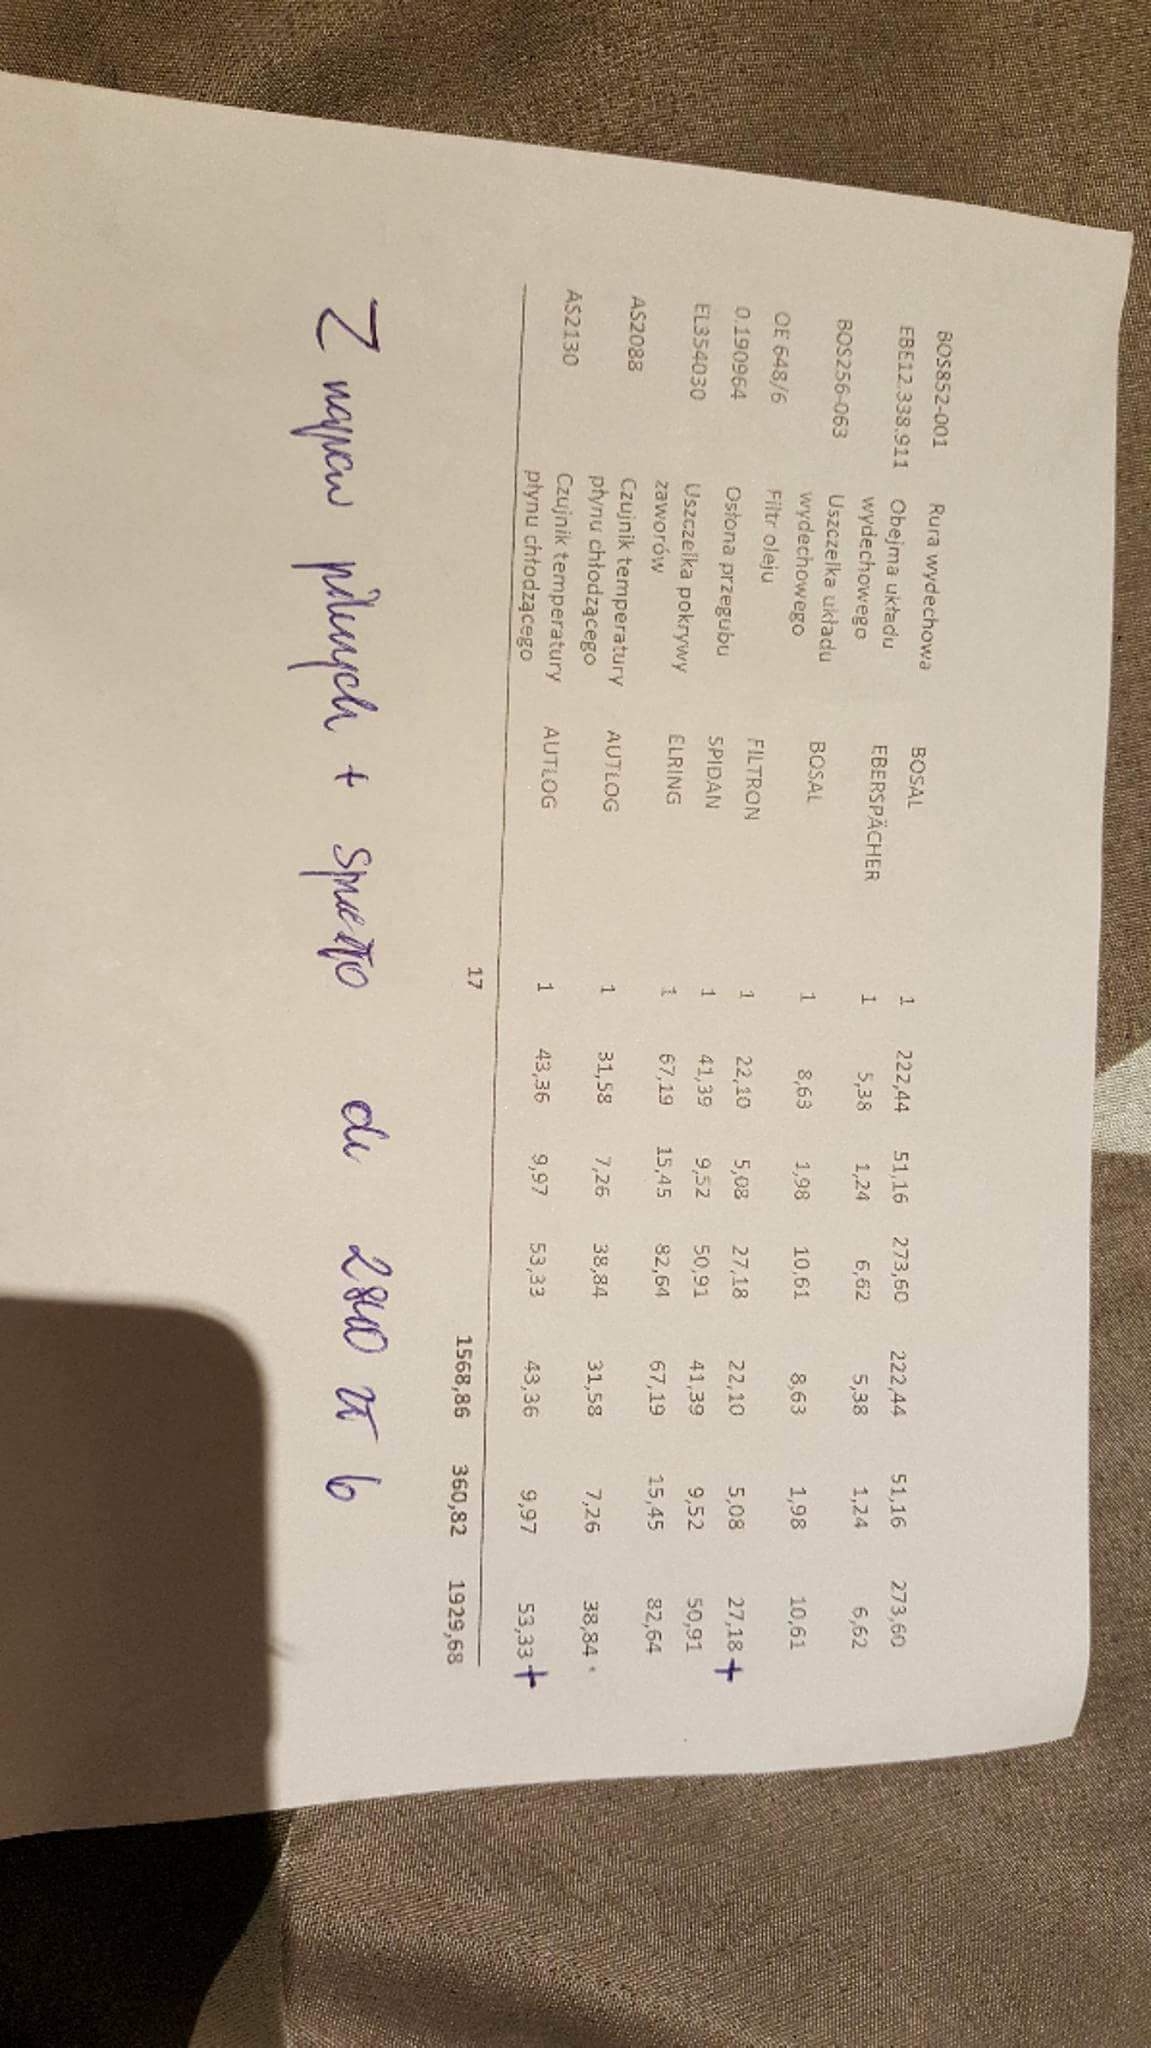 BOS852-001 Rura wydechowa BOSAL 1 222,44 51,16 273,60 222,44 51,16 273,60
EBE12.338.911 Obejma układu wydechowego EBERSPÄCHER 1 5,38 1,24 6,62 5,38 1,24 6,62
BOS256-063 Uszczelka układu wydechowego BOSAL 1 8,63 1,98 10,61 8,63 1,98 10,61
OE 648/6 Filtr oleju FILTRON 1 22,10 5,08 27,18 22,10 5,08 27,18 +
0.190964 Osłona przegubu SPIDAN 1 41,39 9,52 50,91 41,39 9,52 50,91
EL354030 Uszczelka pokrywy zaworów ELRING 1 67,19 15,45 82,64 67,19 15,45 82,64
AS2088 Czujnik temperatury płynu chłodzącego AUTLOG 1 31,58 7,26 38,84 31,58 7,26 38,84
AS2130 Czujnik temperatury płynu chłodzącego AUTLOG 1 43,36 9,97 53,33 43,36 9,97 53,33 +
17 1568,86 360,82 1929,68
Z napraw pilnych + sprzęgło zł b